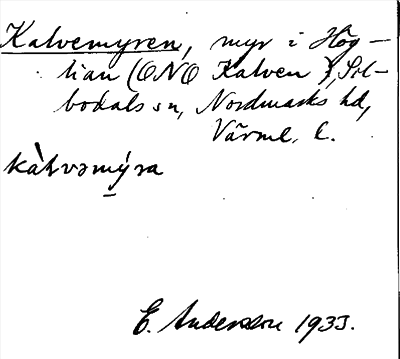 Kalvemyren, myr i Hög-
lian (ONO Kalven), Sil-
bodals sn, Nordmarks hd,
Värml. l.
kàlvəmýra
E. Anderson 1933.